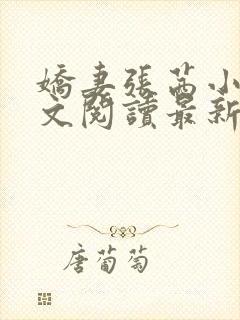 嬌妻張茜小
文閱讀最新
唐葡萄